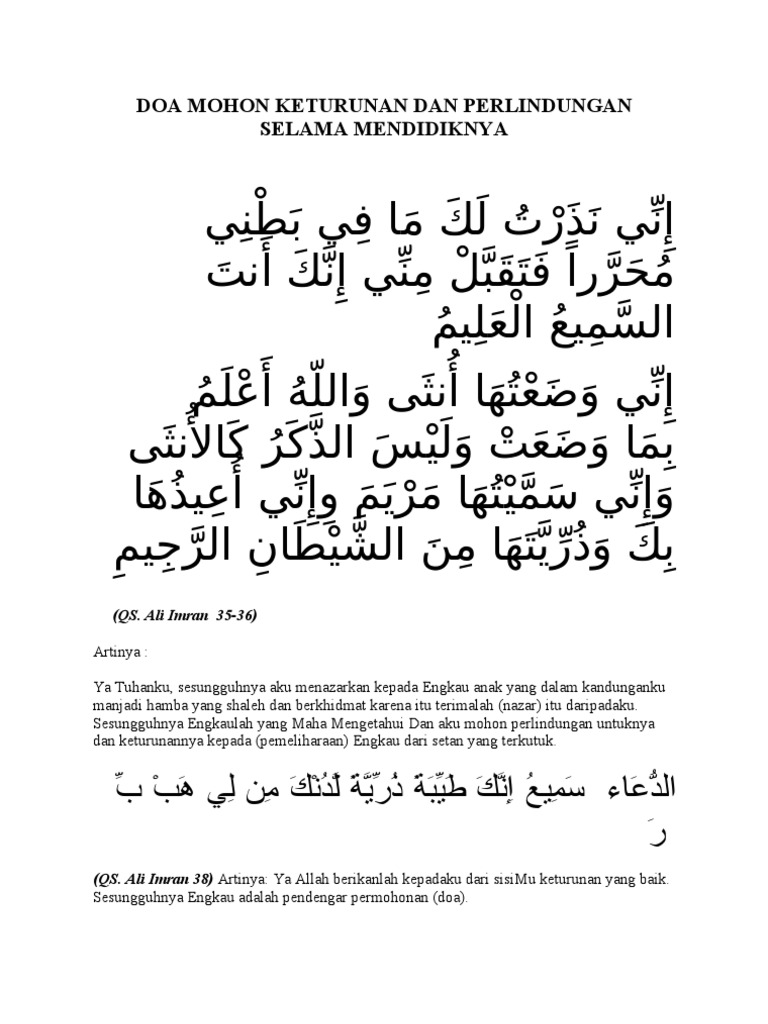 DOA MOHON KETURUNAN DAN PERLINDUNGAN
SELAMA MENDIDIKNYA
إِنِّي نَذَرْتُ لَكَ مَا فِي بَطْنِي
مُحَرَّراً فَتَقَبَّلْ مِنِّي إِنَّكَ أَنتَ
السَّمِيعُ الْعَلِيمُ
إِنِّي وَضَعْتُهَا أُنثَى وَاللّهُ أَعْلَمُ
بِمَا وَضَعَتْ وَلَيْسَ الذَّكَرُ كَالأُنثَى
وَإِنِّي سَمَّيْتُهَا مَرْيَمَ وِإِنِّي أُعِيذُهَا
بِكَ وَذُرِّيَّتَهَا مِنَ الشَّيْطَانِ الرَّجِيمِ
(QS. Ali Imran 35-36)
Artinya :
Ya Tuhanku, sesungguhnya aku menazarkan kepada Engkau anak yang dalam kandunganku
manjadi hamba yang shaleh dan berkhidmat karena itu terimalah (nazar) itu daripadaku.
Sesungguhnya Engkaulah yang Maha Mengetahui Dan aku mohon perlindungan untuknya
dan keturunannya kepada (pemeliharaan) Engkau dari setan yang terkutuk.
الدُّعَاء سَمِيعُ إِنَّكَ طَيِّبَةً ذُرِّيَّةً لَّدُنْكَ مِن لِي هَبْ بِّ
رَ
(QS. Ali Imran 38) Artinya: Ya Allah berikanlah kepadaku dari sisiMu keturunan yang baik.
Sesungguhnya Engkau adalah pendengar permohonan (doa).